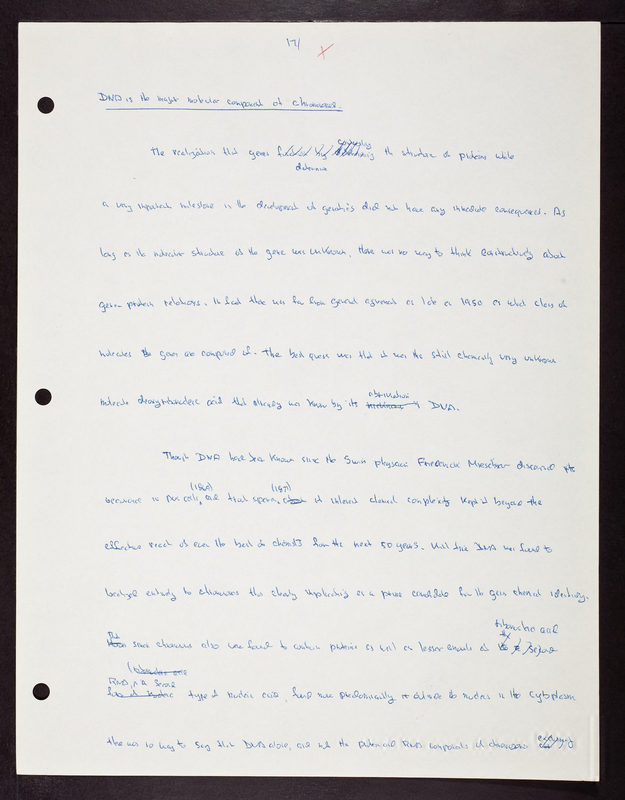 17/ X
DNA is the major molecular component of chromosomes.
The realization that genes by controlling the structure of proteins while
determine
a very important milestone in the development of genetics did not have any immediate consequences. As
long as the molecular structure of the gene was unknown, there was no way to think constructively about
gene-protein relations. In fact there was far from general agreement as late as 1950 as to which class of
molecules the genes are composed of. The best guess was that it was the still chemically very unknown
abbreviation
molecule deoxyribonucleic acid that already was known by its DNA.
Though DNA had been known since the Swiss physician Friederich Miescher discovered its
(1868) (1871)
occurrence in pus cells, and trout sperm, its inherent chemical complexity kept it beyond the
effective reach of even the best of chemists for the next 50 years. Until then DNA was found to
localized entirely to chromosomes thus clearly implicating as a prime candidate for the gene's chemical identity.
ribonucleic acid
But since chromosomes also were found to contain proteins as well as lesser amounts of the second
RNA, a second
type of nucleic acid, found more predominantly outside the nucleus in the cytoplasm
there was no way to say that DNA alone, and not the protein and RNA components of chromosomes